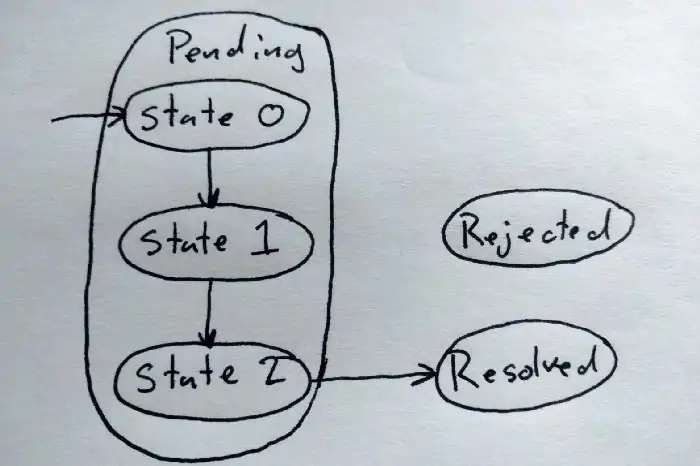 Pending
State 0
State 1
State 2
Rejected
Resolved